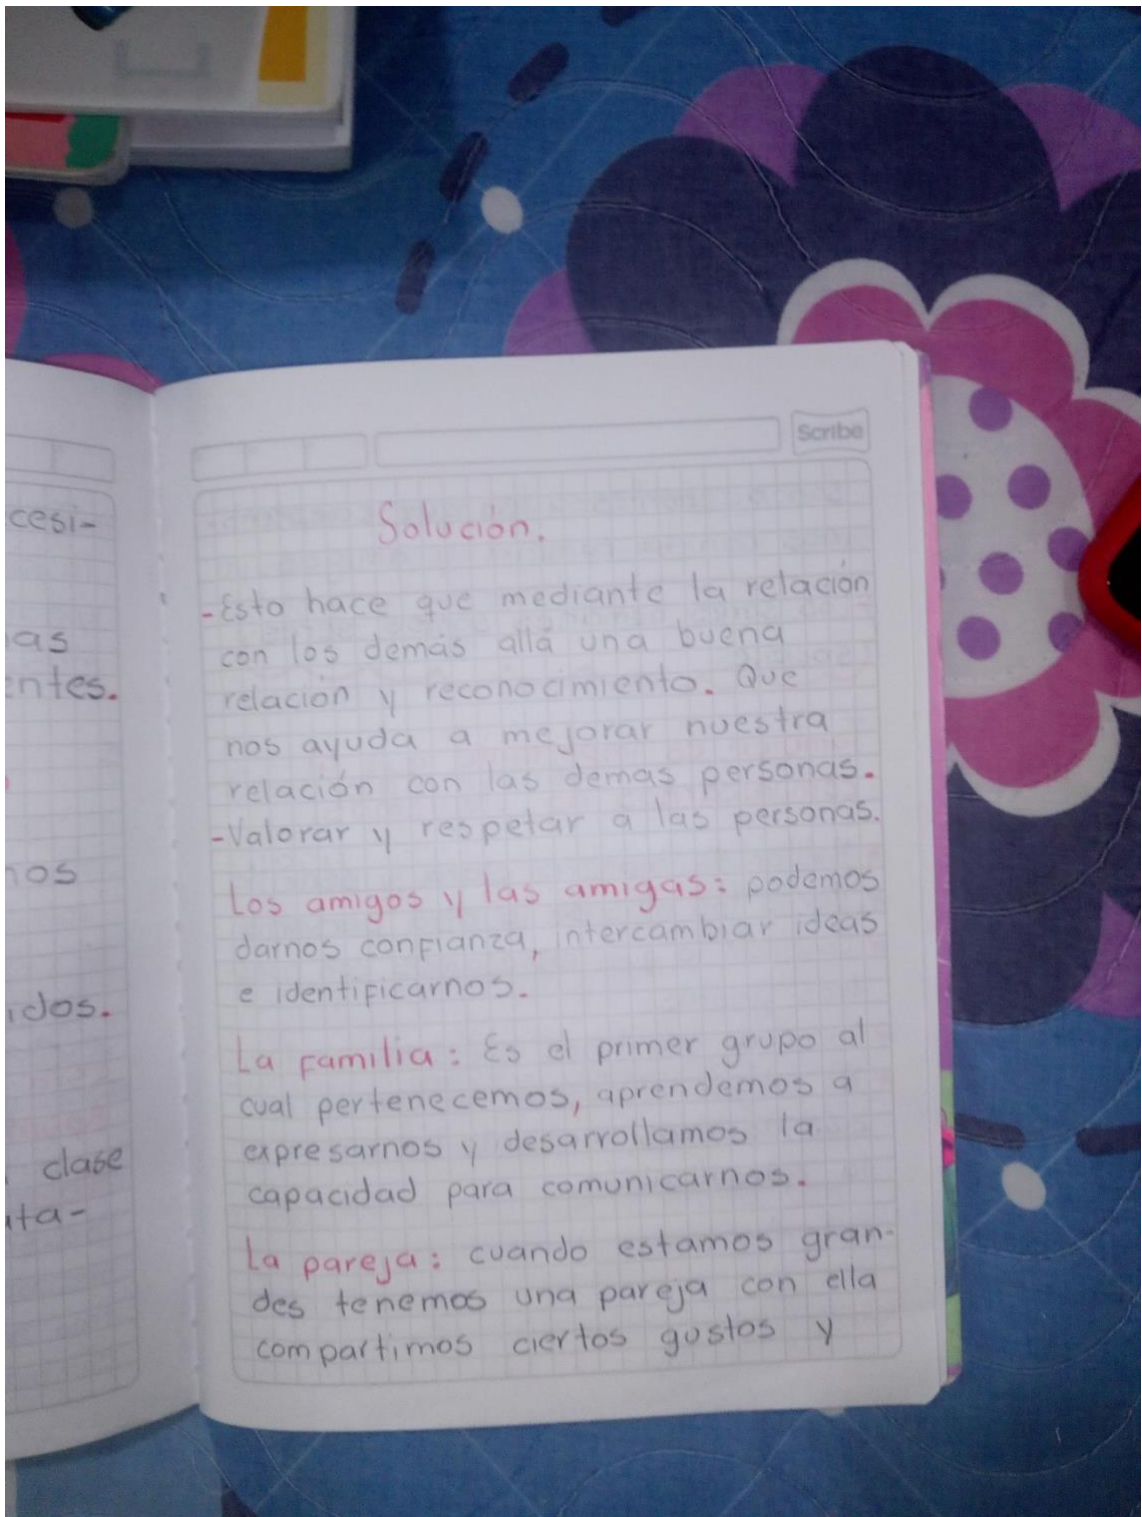 cesi-
as
entes.
nos
idos.
clase
uta-
Scribe
Solución.
-Esto hace que mediante la relación
con los demás allá una buena
relación y reconocimiento. Que
nos ayuda a mejorar nuestra
relación con las demas personas.
-Valorar y respetar a las personas.
Los amigos y las amigas: podemos
darnos confianza, intercambiar ideas
e identificarnos.
La familia: Es el primer grupo al
cual pertenecemos, aprendemos a
expresarnos y desarrollamos la
capacidad para comunicarnos.
La pareja: cuando estamos gran-
des tenemos una pareja con ella
compartimos ciertos gustos y